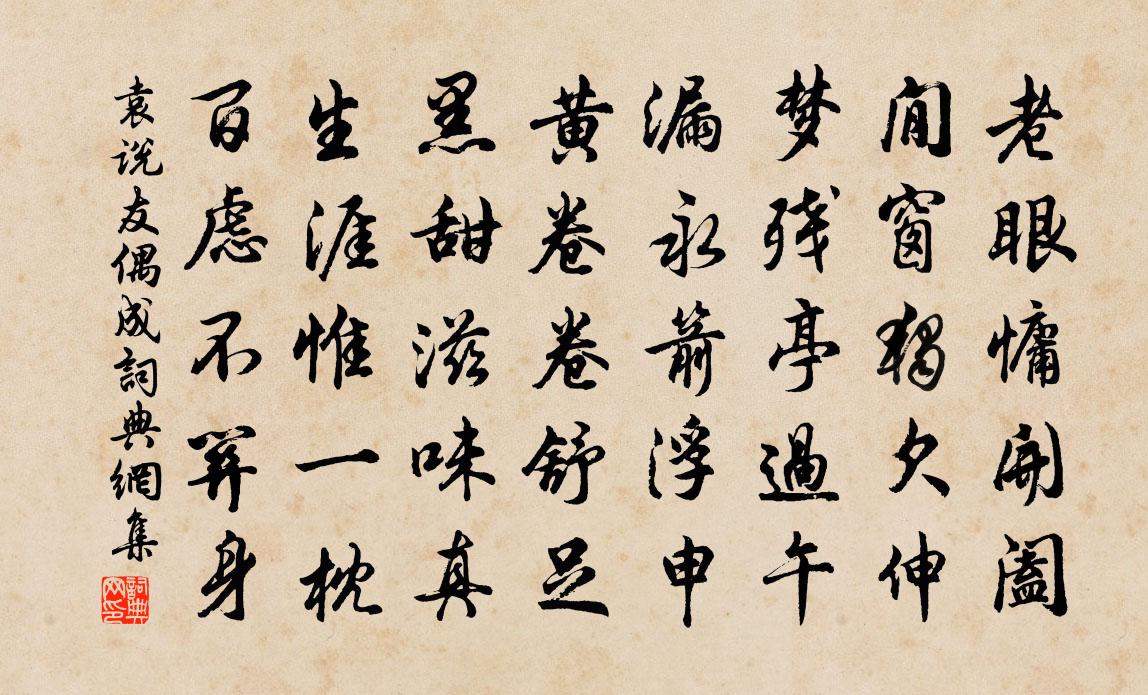 老眼慵開闔
閒窗獨欠伸
梦残亭過午
漏永箭浮申
黄卷卷舒足
黑甜滋味真
生涯惟一枕
百慮不算身
袁说友偶成詞典網集
詞典网印